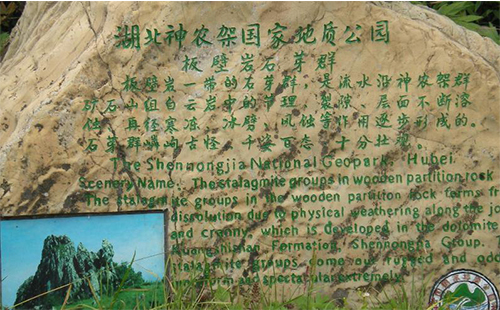 湖北神农架国家地质公园
板壁岩石芽群
板壁岩一带的石芽群，是流水沿神农架群
矿石山组白云岩中的节理、裂隙、层面不断溶
蚀，真经寒冻、冰劈、风蚀等作用逐步形成的。
石芽群嶙峋古怪，千姿百态，十分壮观。
The Shennongjia National Geopark, Hubei
Scenery Name: The stalagmite groups in wooden partition rock
The stalagmite groups in the wooden partition rock forms
dissolution due to physical weathering along the jo
and cranny, which is developed in the dolomite
Kuangshishan Formation, Shennongjia Group.
stalagmite groups some our rugged and odd
uniform and spectacular extremely.